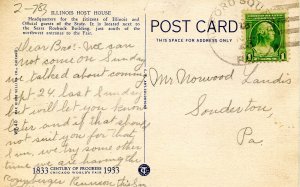 2-783
ILLINOIS HOST HOUSE
Headquarters for the citizens of Illinois and
Official guests of the State. It is located next
to the Sears Roebuck Building, just south of the
northwest entrance to the Fair.
POST CARD
THIS SPACE FOR ADDRESS ONLY
Dear Bro:- We can
not come on Sunday
we talked about coming
Sept 24. last Sunday
but will let you know
later and if that should
not suit you for that
time, we try some other
time we are having the
Reunion this Sun
Mr Norwood Landis
Souderton
Pa.
1833 CENTURY OF PROGRESS 1933
CHICAGO WORLD'S FAIR